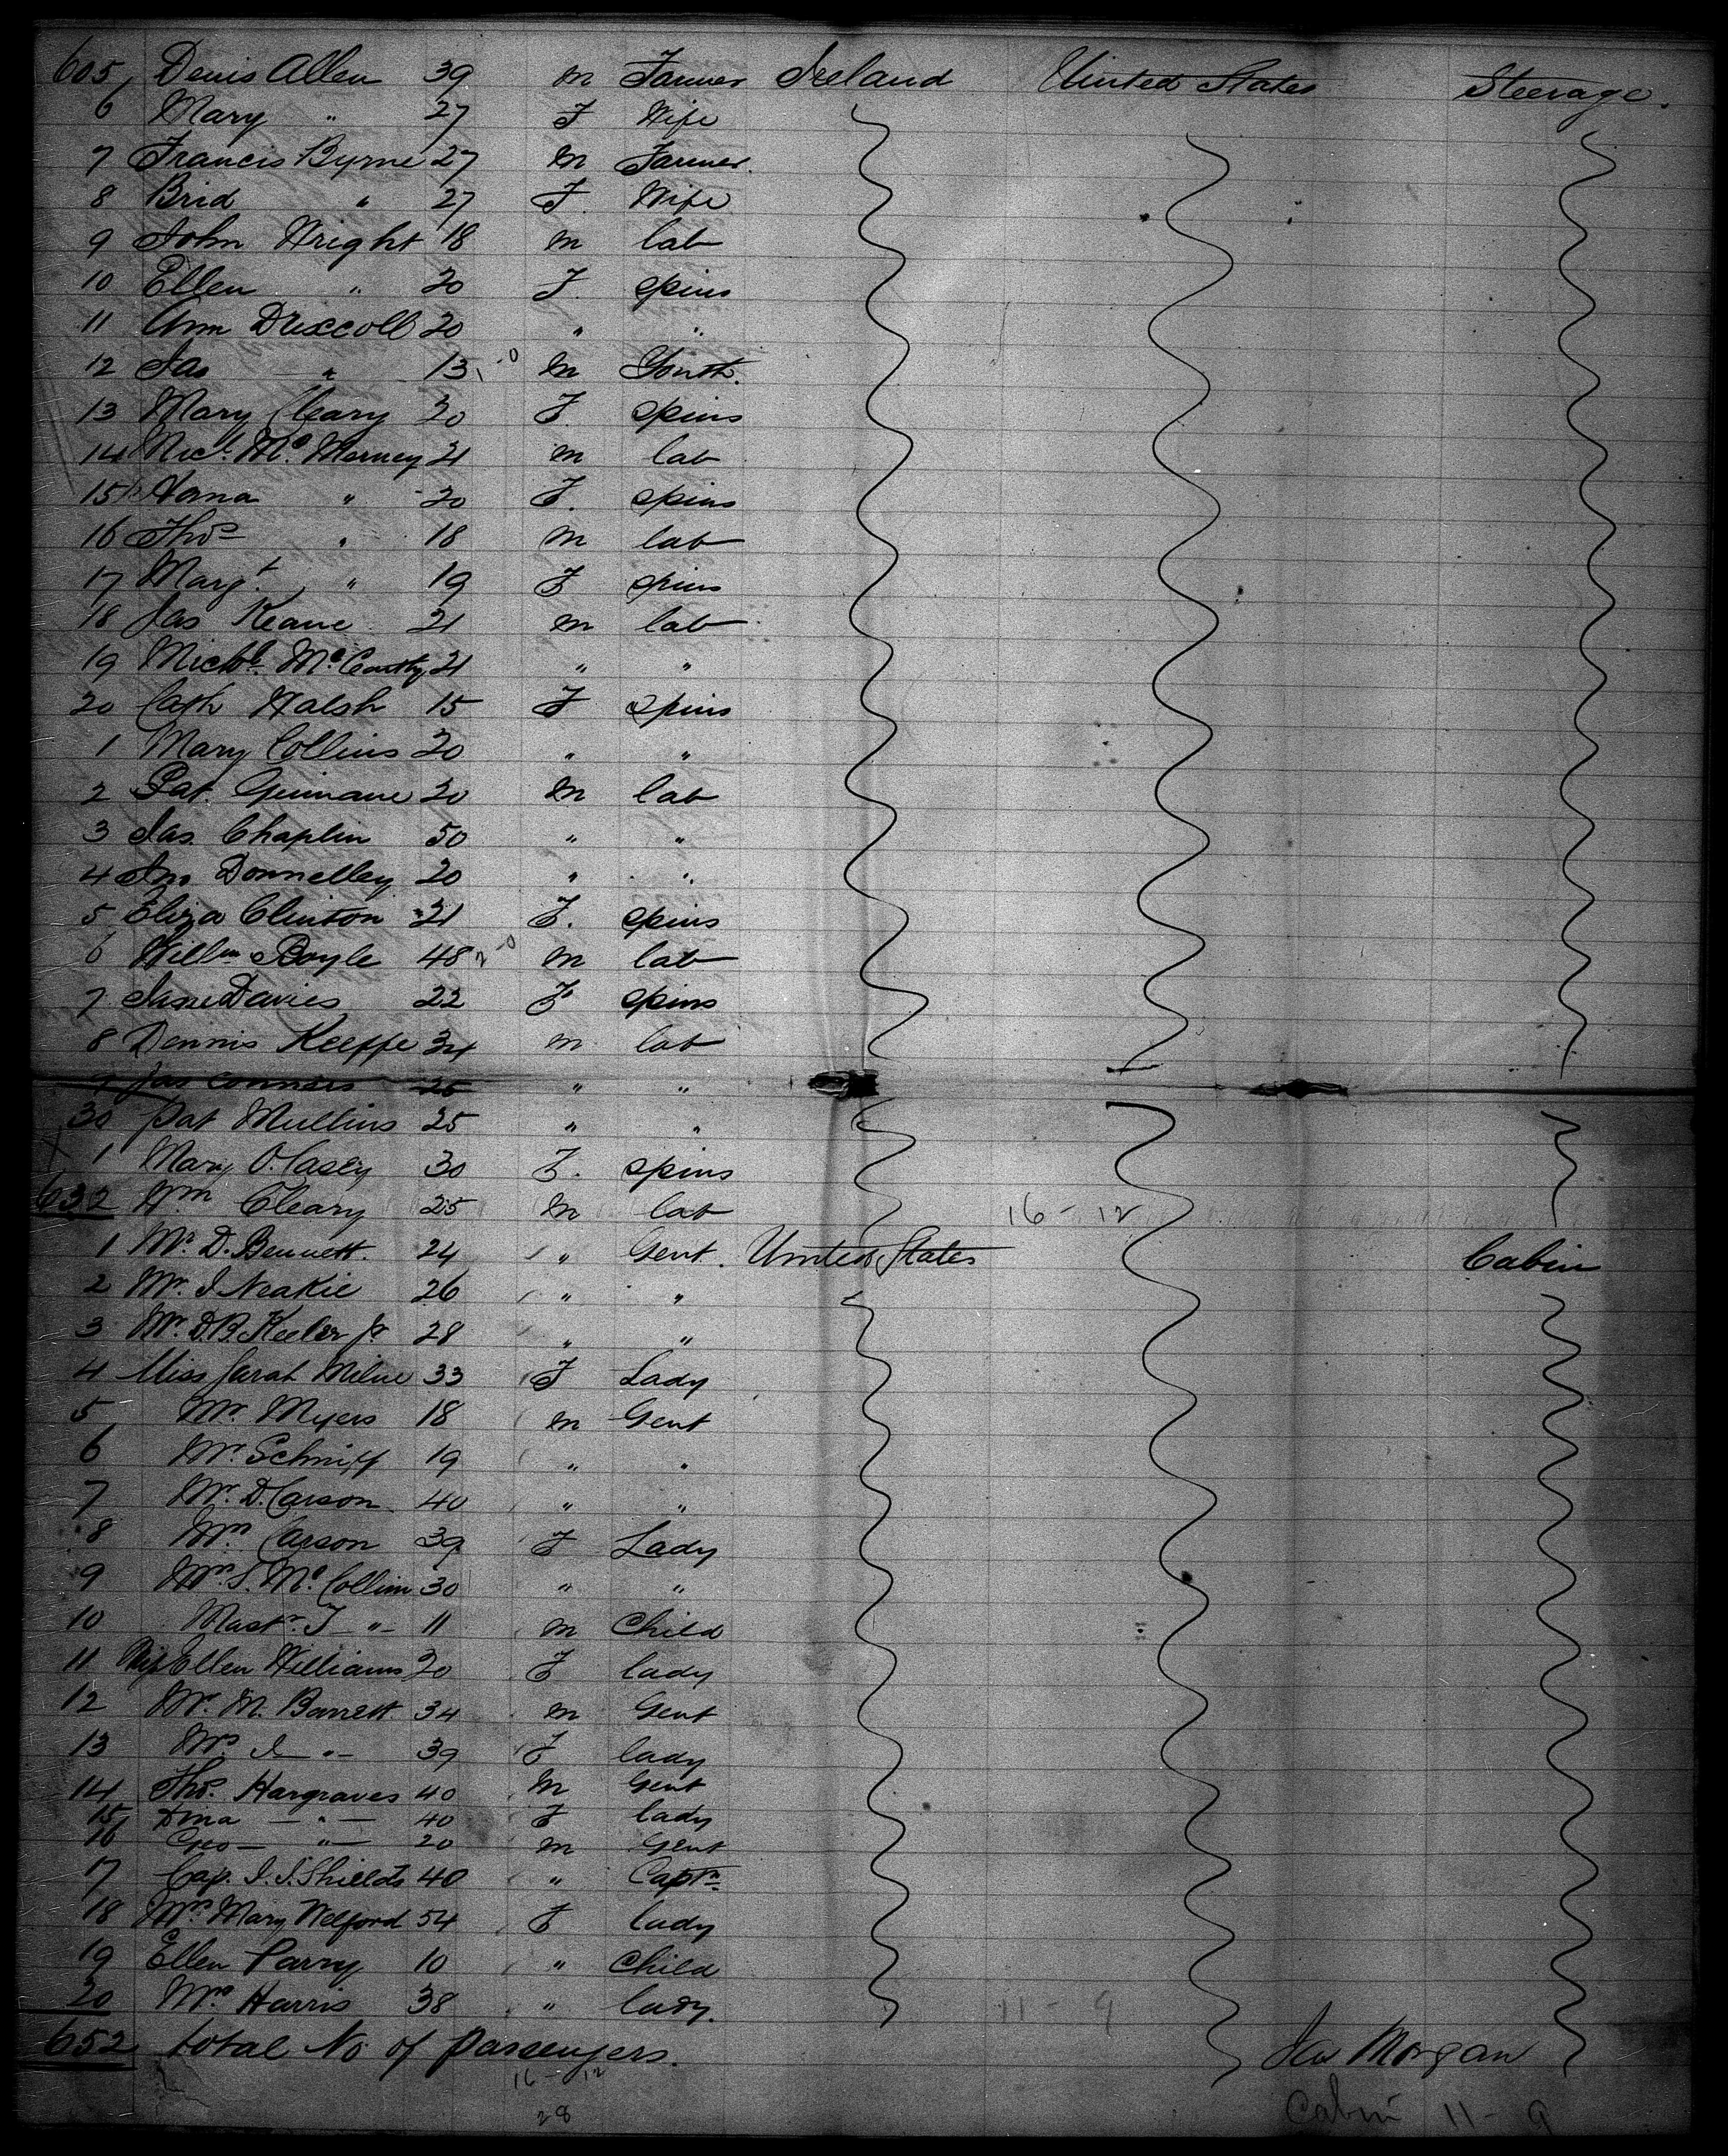 605 Denis Allen 39 m Farmer Ireland United States Steerage.
6 Mary " 27 F Wife
7 Francis Byrne 27 m Farmer.
8 Brid " 27 F. Wife
9 John Wright 18 m lab
10 Ellen " 20 F. Spins
11 Ann Driscoll 20 " "
12 Jas " 13 m Youth.
13 Mary Cleary 20 F. Spins
14 Mc. 21 m lab
15 " 20 F. Spins
16 Thos " 18 m lab
17 Margt. " 19 F Spins
18 Jas Keane 21 m lab
19 Michl. McCarthy 21 " "
20 Cath Walsh 15 F Spins
1 Mary Collins 20 " "
2 Pat. Guinane 20 m lab
3 Jas. Chaplin 50 " "
4 Jno Donnelley 20 " "
5 Eliza Clinton 21 F. Spins
6 Willm Boyle 48 m lab
7 Jane Davies 22 F Spins
8 Dennis Keeffe 34 m lab
9 Jas Connors 25 " "
30 Pat Mullins 25 " "
1 Mary O.Casey 30 F. Spins
632 Wm Cleary 25 m lab 16 - 12
1 Mr D. Bennett. 24 " Gent. United States Cabin
2 Mr. J Neakie 26 " "
3 Mr. D.B. Keeler Jr 28 " "
4 Miss Sarah Milne 33 F Lady
5 Mr. Myers 18 m Gent
6 Mr. 19 " "
7 Mr. D. Carson 40 " "
8 Mrs. Carson 39 F Lady
9 Mrs. S. McCollim 30 " "
10 Mastr. J - " - 11 m Child
11 Miss Ellen Williams 20 F lady
12 Mr. M. Barrett 34 m Gent
13 Mrs J - " - 39 F lady
14 Thos. Hargraves 40 m Gent
15 - " - 40 F lady
16 Geo - " - 20 m Gent
17 Cap. J. J. Shields 40 " Captn
18 Mrs Mary Welford 54 F lady
19 Ellen Parry 10 " Child
20 Mrs Harris 38 " lady. 11 - 9
652 total No of passengers. Jas Morgan
16 - 12
28 Cabin 11 - 9